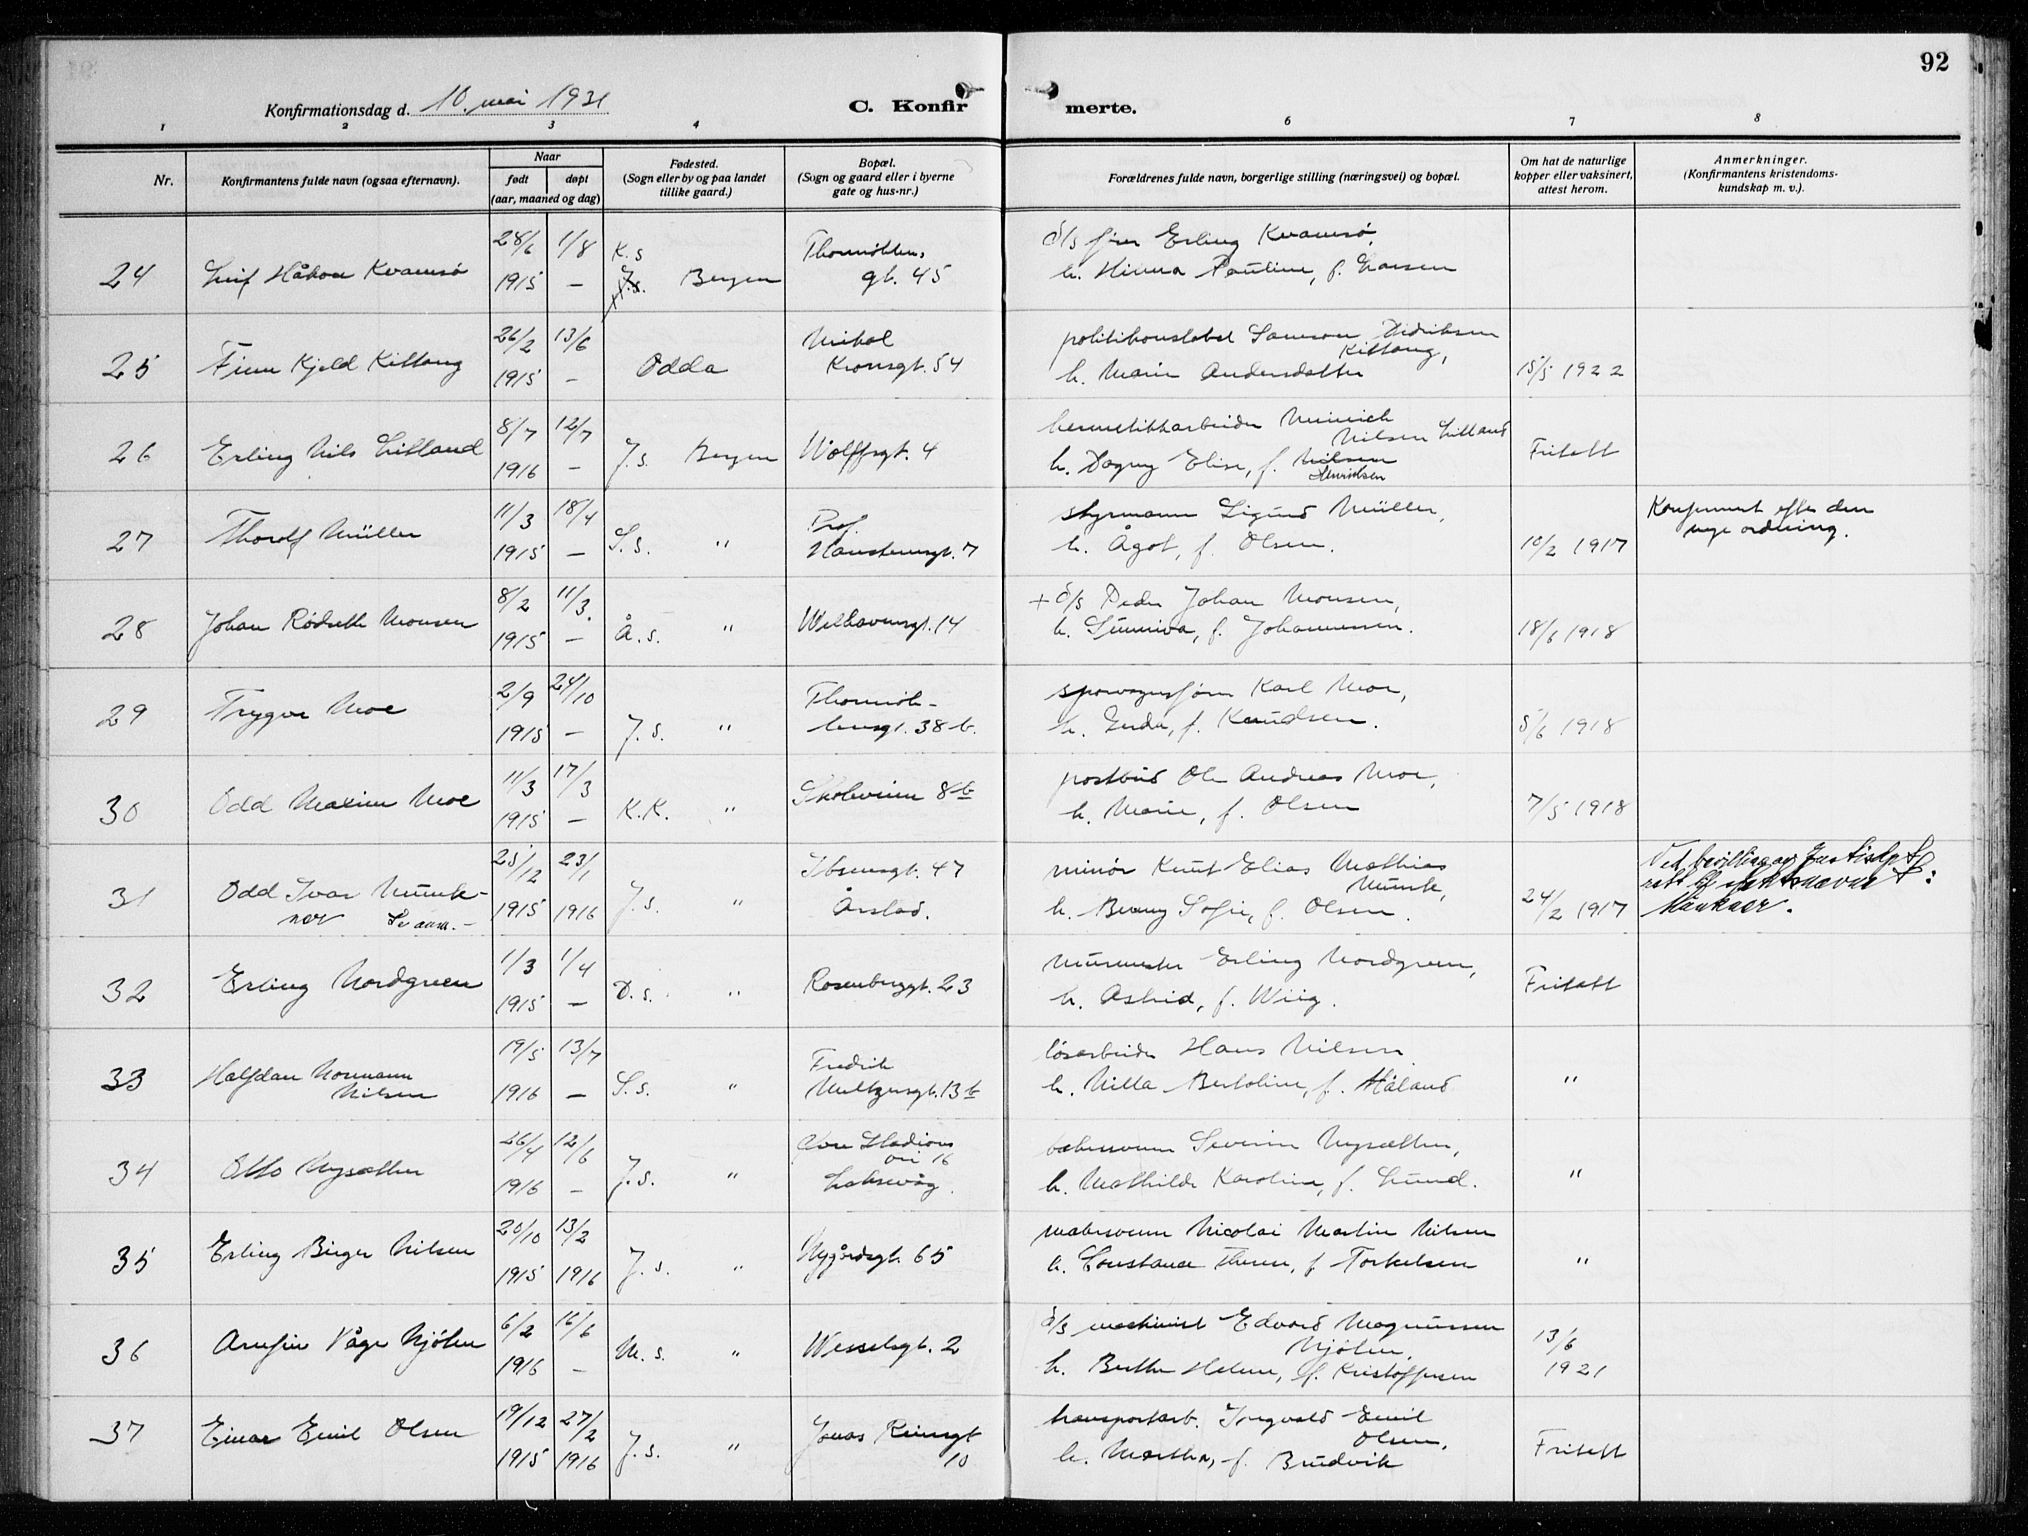 92
Konfirmationsdag d. 10. mai 1931
C. Konfir merte.
1 2 3 4 6 7 8
Nr.
Konfirmantens fulde navn (ogsaa efternavn).
Naar
født døpt
(aar, maaned og dag)
Fødested.
(Sogn eller by og paa landet
tillike gaard.)
Bopæl.
(Sogn og gaard eller i byerne
gate og hus-nr.)
Forældrenes fulde navn, borgerlige stilling (næringsvei) og bopæl.
Om hat de naturlige
kopper eller vaksinert,
attest herom.
Anmerkninger.
(Konfirmantens kristendoms-
kundskap m. v.).
28/6 1/8 K.s Thormøhlens
24 Leif Håkon Kvamsø 1915 — J.s. Bergen gt. 45
d/s fører Erling Kvamsø,
h. Minna Pauline, f. Larsen
26/2 13/6 Mikal
25 Finn Kjeld Kittang 1915 — Odda Kronsgt. 54
politikonstabel Samson Didriksen
Kittang,
h. Marie Andersdatter 15/5 1922
8/7 12/7
26 Erling Nils Litland 1916 — J.s. Bergen Wolffsgt. 4
hermetikkarbeider Minrich
Nilsen Litland
h. Dagny Elise, f. Nilsen Fritatt
Henriksen
11/3 18/4 Prof.
27 Thorolf Müller 1915 — S.s. " Hansteensgt. 7
styrmann Sigurd Müller,
h. Ågot, f. Olsen. 10/2 1917
Konfirmert efter den
nye ordning.
8/2 11/3
28 Johan Rødseth Monsen 1915 — Å.s. " Welhavensgt. 14
+ d/s Peder Johan Monsen,
h. Sunniva, f. Johannessen. 18/6 1918
2/9 24/10 Thormøh-
29 Trygve Moe 1915 — J.s. " lensgt. 38 b.
sporvognsfører Karl Moe,
h. Enda, f. Knudsen. 5/6 1918
11/3 17/3
30 Odd Maxim Moe 1915 — K.K. " Skoleveien 8 b
postbud Ole Andreas Moe,
h. Marie, f. Olsen 7/5 1918
25/12 23/1 Ibsensgt. 47
31 Odd Ivar Munk- 1915 1916 J.s. " Årstad.
ner Se anm. —
minør Knut Elias Mathias
Munk,
h. Benny Sofie, f. Olsen. 24/2 1917
Ved bevilling av Justisdept
rett til slektsnavnet:
Munkner.
1/3 1/4
32 Erling Nordgreen 1915 — D.s. " Rosenberggt. 23
murmester Erling Nordgreen,
h. Astrid, f. Wiig. Fritatt
19/5 13/7 Fredrik
33 Halfdan Normann 1916 — S.s. " Meltzersgt. 13 b
Nilsen
løsarbeider Hans Nilsen
h. Milla Bertoline, f. Håland "
26/4 12/6 Øvre Stadions
vei 16
34 Otto Nysæther 1916 — J.s. " Laksevåg.
bakersvenn Severin Nysæther,
h. Mathilde Karoline, f. Lund. "
20/10 13/2
35 Erling Birger Nilsen 1915 1916 J.s. " Nygårdsgt. 65
malersvenn Nicolai Martin Nilsen
h. Constance, f. Torkelsen "
6/2 16/6
36 Arnfin Våge Njøten 1916 — M.s. " Wesselsgt. 2
d/s maskinist Edvard Magnussen
Njøten,
h. Berthe Helene, f. Kristoffersen 13/6
1921
19/12 27/2
37 Einar Emil Olsen 1915 1916 J.s. " Jonas Reinsgt
10
transportarb. Ingvald Emil
Olsen,
h. Martha, f. Brudvik Fritatt